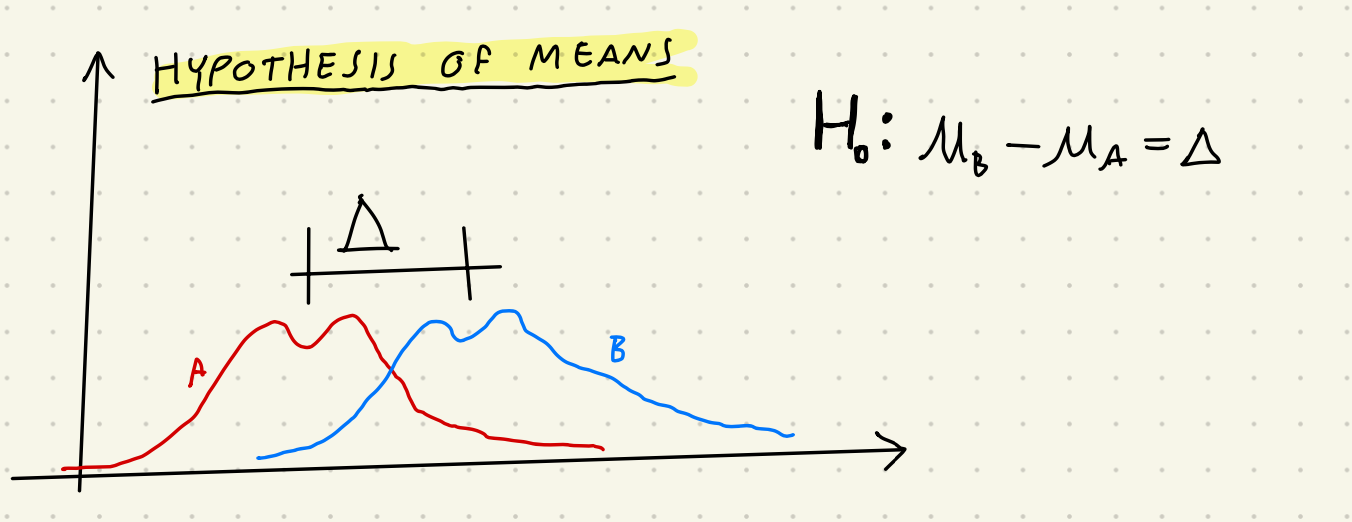 HYPOTHESIS OF MEANS
H₀: μ_B − μ_A = Δ
Δ
A
B